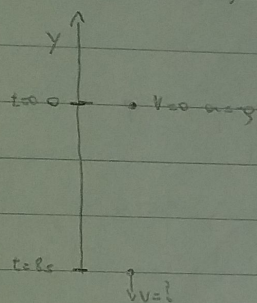 y
t=0 0 v=0 a=-g
t=8s
v=?